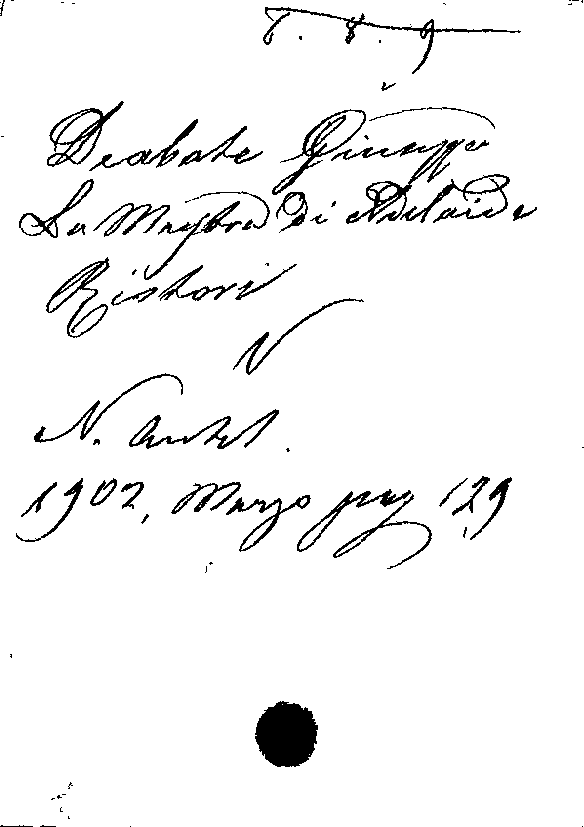 T. 8. 9
Deabate Giuseppe
La Mostra di Adelaide
Ristori
N
N. Antol.
1902, Marzo pag 129